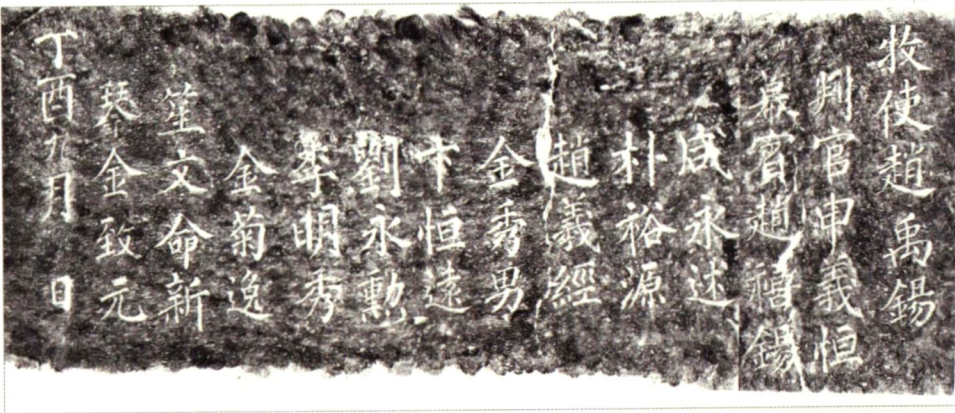 牧使趙禹錫
判官申義恒
幕賓趙禧錫
咸永述
朴裕源
趙義經
金秀男
卞恒遠
劉永勳
李明秀
金菊逸
笙文命新
琴金致元
丁酉九月 日